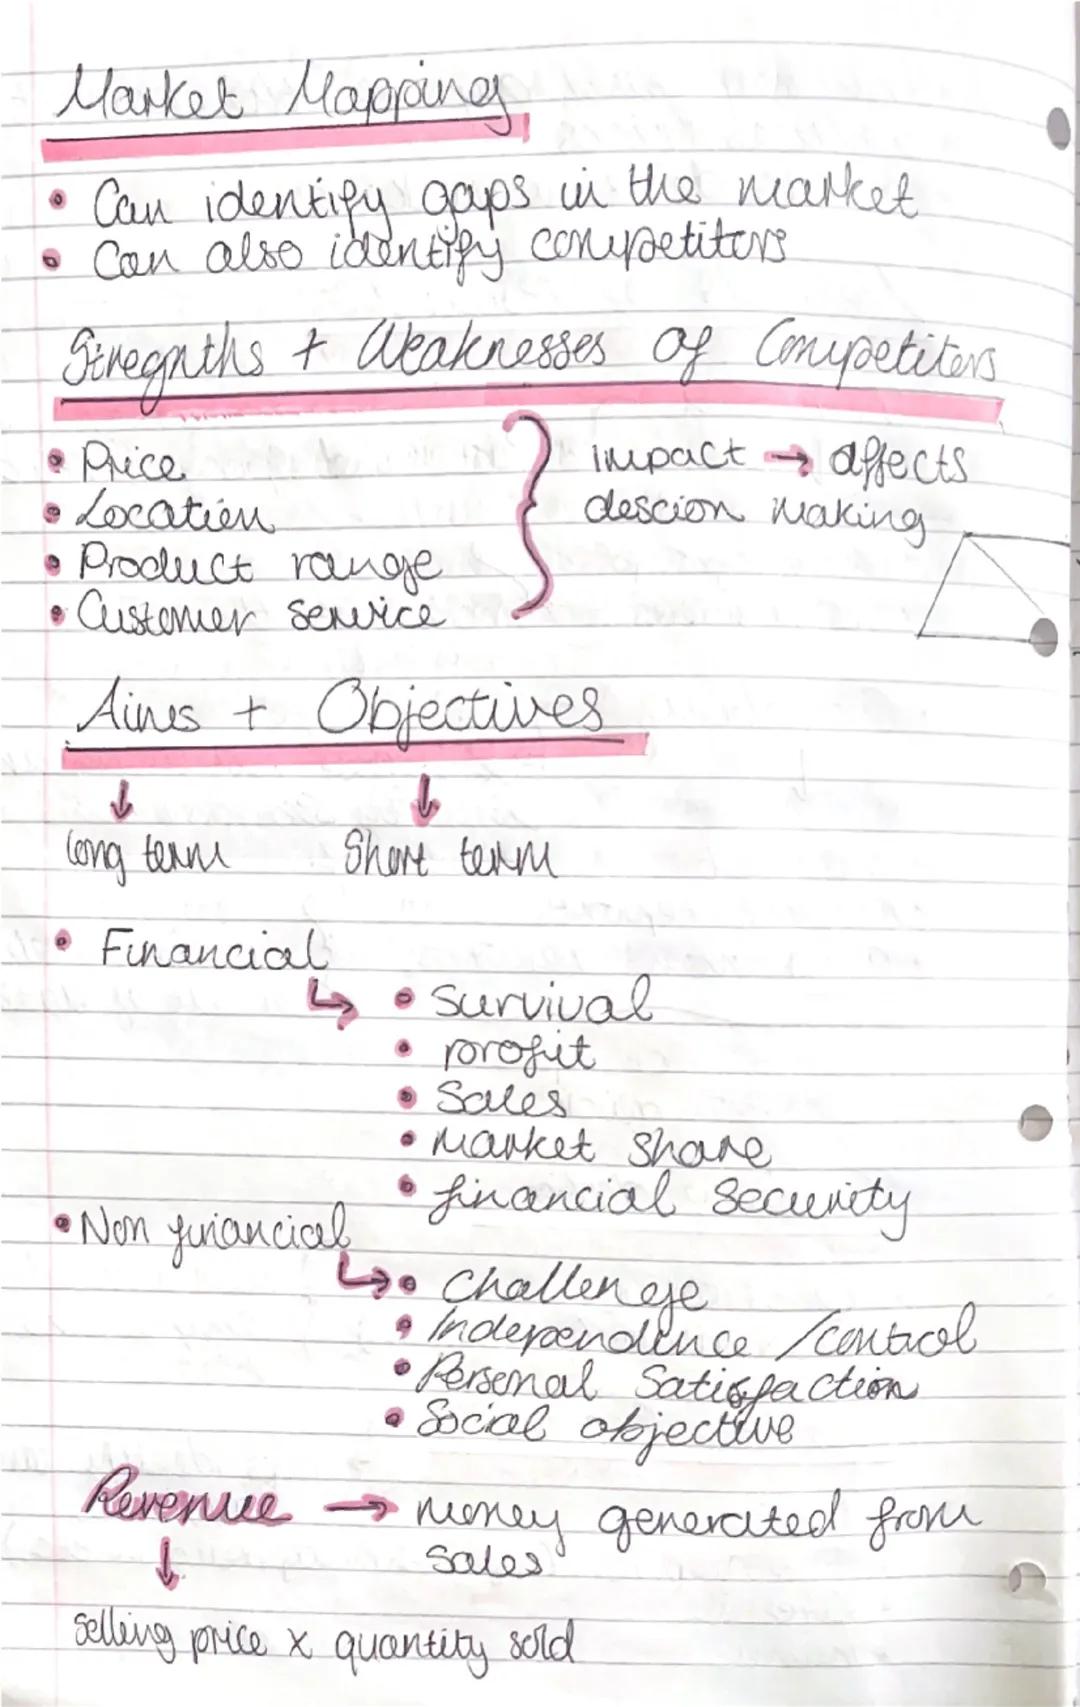 Market Mapping
• Can identify gaps in the market
• Can also identify competitors
Stregnths + Weaknesses of Competiters
• Price
• Location
• Product range
• Customer service
impact → affects
descion making
Aims + Objectives
↓ ↓
long term Short term
• Financial
↳ • Survival
• profit
• Sales
• Market share
• financial security
• Non financial
↳ • Challenge
• Independence / control
• Personal Satisfaction
• Social objective
Revenue → money generated from
sales
↓
selling price x quantity sold